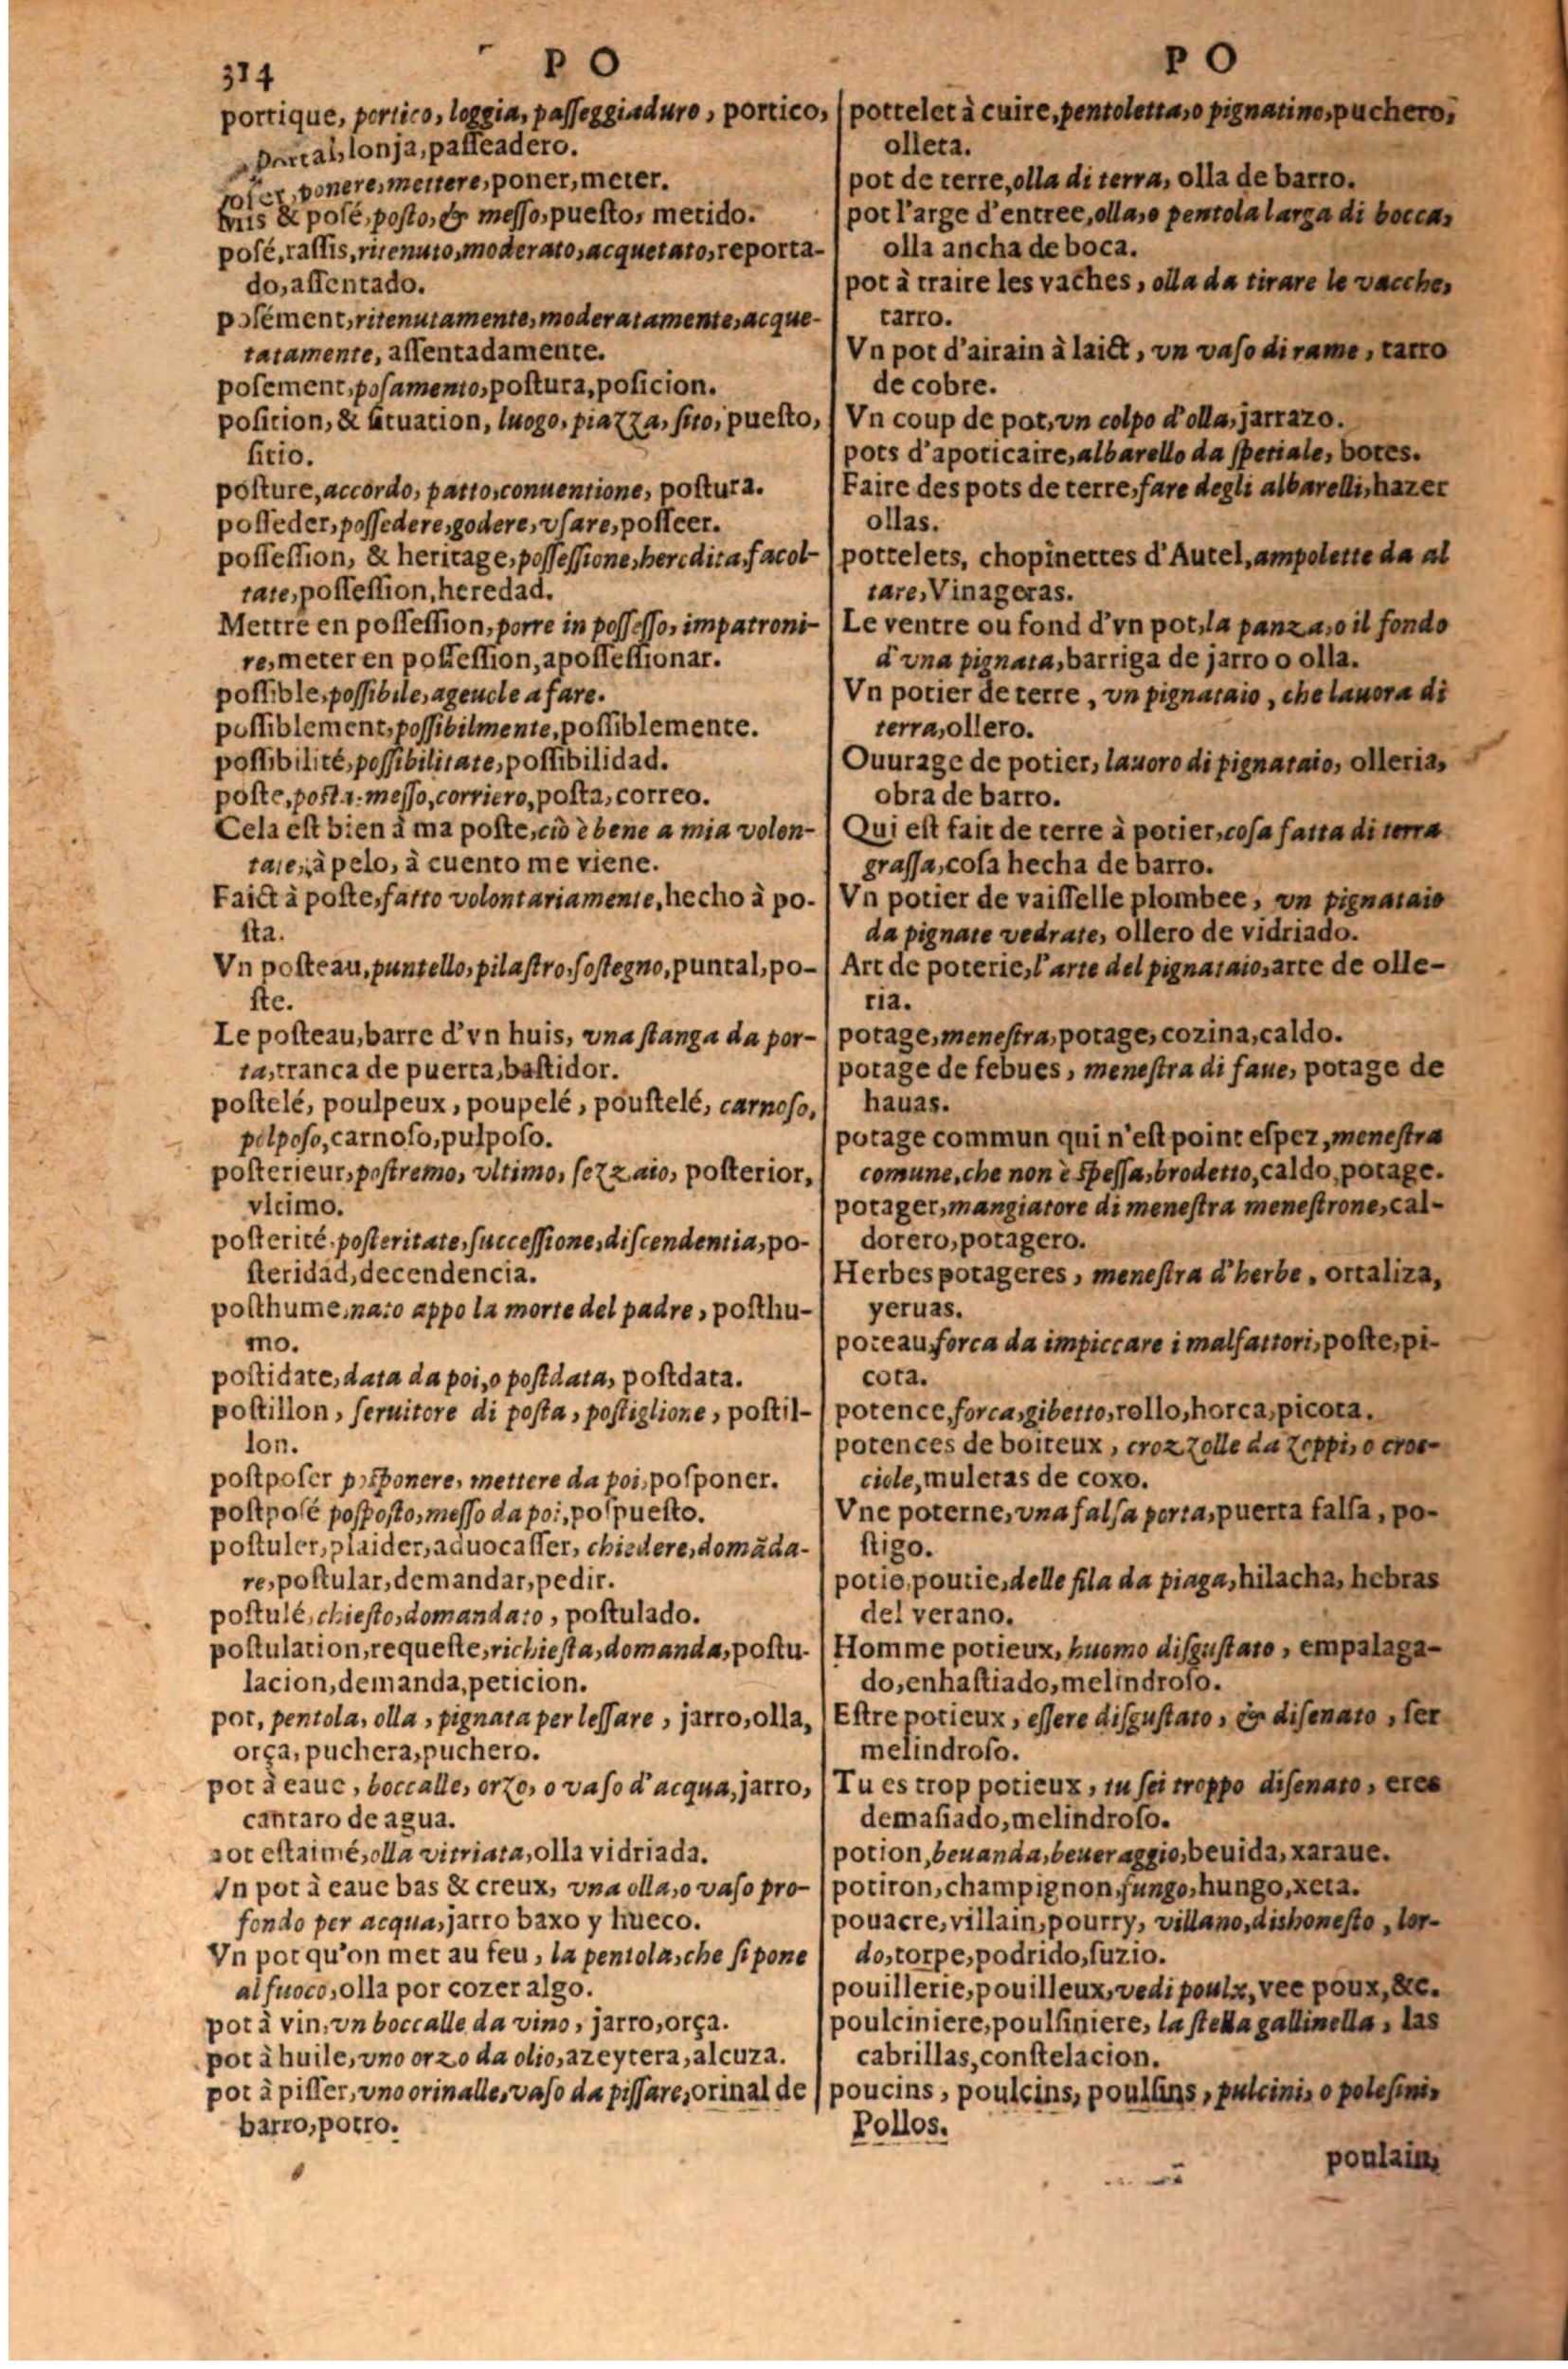 314
P O
portique, portico, loggia, passeggiaduro, portico,
portal, lonja, paſſeadero.
poſer, ponere, mettere, poner, meter.
mis & poſé, poſto, & meſſo, pueſto, metido.
poſé, raſſis, ritenuto, moderato, acquetato, reporta-
do, aſſentado.
poſément, ritenutamente, moderatamente, acque-
tatamente, aſſentadamente.
poſement, poſamento, poſtura, poſicion.
poſition, & ſituation, luogo, piazza, ſito, pueſto,
ſitio.
poſture, accordo, patto, conuentione, poſtura.
poſſeder, poſſedere, godere, vſare, poſſeer.
poſſeſſion, & heritage, poſſeſſione, heredita, facol-
tate, poſſeſſion, heredad.
Mettre en poſſeſſion, porre in poſſeſſo, impatroni-
re, meter en poſſeſſion, apoſſeſſionar.
poſſible, poſſibile, ageuole a fare.
poſſiblement, poſſibilmente, poſſiblemente.
poſſibilité, poſſibilitate, poſſibilidad.
poſte, poſta. meſſo, corriero, poſta, correo.
Cela eſt bien à ma poſte, ciò è bene a mia volon-
tate, à pelo, à cuento me viene.
Faict à poſte, fatto volontariamente, hecho à po-
ſta.
Vn poſteau, puntello, pilaſtro, ſoſtegno, puntal, po-
ſte.
Le poſteau, barre d'vn huis, vna ſtanga da por-
ta, tranca de puerta, baſtidor.
poſtelé, poulpeux, poupelé, pouſtelé, carnoſo,
polpoſo, carnoſo, pulpoſo.
poſterieur, poſtremo, vltimo, ſezzaio, poſterior,
vltimo.
poſterité, poſteritate, ſucceſſione, diſcendentia, po-
ſteridad, decendencia.
poſthume, nato appo la morte del padre, poſthu-
mo.
poſtidate, data da poi, o poſtdata, poſtdata.
poſtillon, ſeruitore di poſta, poſtiglione, poſtil-
lon.
poſtpoſer poſponere, mettere da poi, poſponer.
poſtpoſé poſpoſto, meſſo da poi, poſpueſto.
poſtuler, plaider, aduocaſſer, chiedere, domãda-
re, poſtular, demandar, pedir.
poſtulé, chieſto, domandato, poſtulado.
poſtulation, requeſte, richieſta, domanda, poſtu-
lacion, demanda, peticion.
pot, pentola, olla, pignata per leſſare, jarro, olla,
orça, puchera, puchero.
pot à eaue, boccalle, orzo, o vaſo d'acqua, jarro,
cantaro de agua.
pot eſtaimé, olla vitriata, olla vidriada.
Vn pot à eaue bas & creux, vna olla, o vaſo pro-
fondo per acqua, jarro baxo y hueco.
Vn pot qu'on met au feu, la pentola, che ſi pone
al fuoco, olla por cozer algo.
pot à vin, vn boccalle da vino, jarro, orça.
pot à huile, vno orzo da olio, azeytera, alcuza.
pot à piſſer, vno orinalle, vaſo da piſſare, orinal de
barro, potro.
P O
pottelet à cuire, pentoletta, o pignatino, puchero,
olleta.
pot de terre, olla di terra, olla de barro.
pot l'arge d'entree, olla, o pentola larga di bocca,
olla ancha de boca.
pot à traire les vaches, olla da tirare le vacche,
tarro.
Vn pot d'airain à laict, vn vaſo di rame, tarro
de cobre.
Vn coup de pot, vn colpo d'olla, jarrazo.
pots d'apoticaire, albarello da ſpetiale, botes.
Faire des pots de terre, fare degli albarelli, hazer
ollas.
pottelets, chopinettes d'Autel, ampolette da al
tare, Vinageras.
Le ventre ou fond d'vn pot, la panza, o il fondo
d'vna pignata, barriga de jarro o olla.
Vn potier de terre, vn pignataio, che lauora di
terra, ollero.
Ouurage de potier, lauoro di pignataio, olleria,
obra de barro.
Qui eſt fait de terre à potier, coſa fatta di terra
graſſa, coſa hecha de barro.
Vn potier de vaiſſelle plombee, vn pignataio
da pignate vedrate, ollero de vidriado.
Art de poterie, l'arte del pignataio, arte de olle-
ria.
potage, meneſtra, potage, cozina, caldo.
potage de febues, meneſtra di faue, potage de
hauas.
potage commun qui n'eſt point eſpez, meneſtra
comune, che non è ſpeſſa, brodetto, caldo, potage.
potager, mangiatore di meneſtra meneſtrone, cal-
dorero, potagero.
Herbes potageres, meneſtra d'herbe, ortaliza,
yeruas.
poteau, forca da impiccare i malfattori, poſte, pi-
cota.
potence, forca, gibetto, rollo, horca, picota.
potences de boiteux, crozzolle da zoppi, o croc-
ciole, muletas de coxo.
Vne poterne, vna falſa porta, puerta falſa, po-
ſtigo.
potie, poutie, delle fila da piaga, hilacha, hebras
del verano.
Homme potieux, huomo diſguſtato, empalaga-
do, enhaſtiado, melindroſo.
Eſtre potieux, eſſere diſguſtato, & diſenato, ſer
melindroſo.
Tu es trop potieux, tu ſei troppo diſenato, eres
demaſiado, melindroſo.
potion, beuanda, beueraggio, beuida, xaraue.
potiron, champignon, fungo, hungo, xeta.
pouacre, villain, pourry, villano, dishoneſto, lor-
do, torpe, podrido, ſuzio.
pouillerie, pouilleux, vedi poulx, vee poux, &c.
poulciniere, poulſiniere, la ſtella gallinella, las
cabrillas, conſtelacion.
poucins, poulcins, poulſins, pulcini, o poleſini,
Pollos.
poulain,